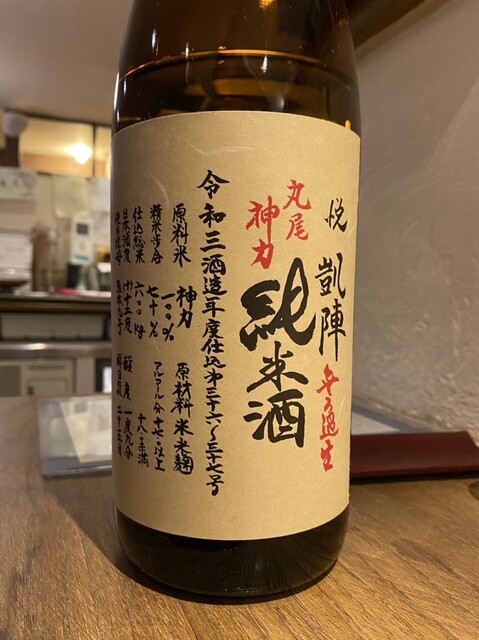 悦凱陣
無ろ過生
丸尾
神力
純米酒
令和三酒造年度仕込第三十六〜三十七号
原料米 神力 一〇〇% 原材料 米 米麹
精米歩合 七十% アルコール分 十七以上
仕込総米 六〇〇kg 十八未満